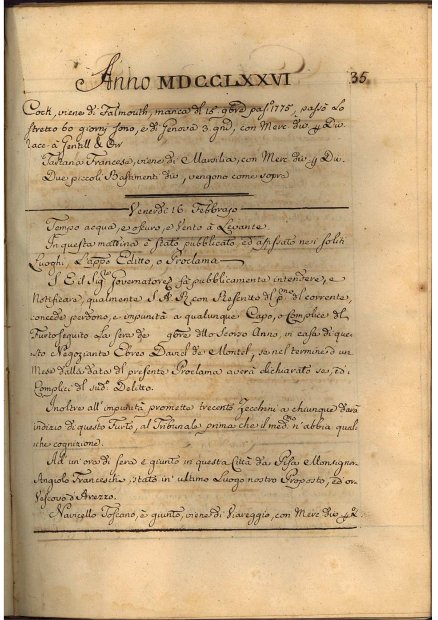 Anno MDCCLXXVI 35
Cock, viene di Falmouth, manca dl 15 9bre pas.º 1775, passò lo
stretto 60 giorni sono, e di Genova 3 gni, con Merc. div. p Div.
Race. a Gentill & Orr
Tartana Francese, viene di Marsilia, con Merc. div. p Div.
Due piccoli Bastimenti div, vengono come sopra
Venerdì 16 Febbraio
Tempo acqua, e oscuro, e Vento à Levante.
In questa mattina è stato pubblicato, ed affissato nei soliti
Luoghi, L'app.º Editto o Proclama
S. E. il Sig.
Governatore fà pubblicamente intendere, e
Notificare, qualmente S. A. R. con Rescritto dl p.mo dl corrente,
concede perdono, e impunità a qualunque Capo, o Complice dl
Furto seguito La sera de 9bre dllo scorso Anno, in casa di que-
sto Negoziante Ebreo Daniel de Montel, se nel termine d'un
Mese dalla data dl presente Proclama averà dichiarato se, ed i
Complici dl sud.º Delitto.
Inoltre all'impunità promette trecento Zecchini a chiunque darà
indizio di questo Furto, al Tribunale prima che il med.mo n'abbia qual-
che cognizione.
Ad un'ora di sera è giunto in questa Città da Pisa Monsignor
Angiolo Franceschi, stato in ultimo Luogo nostro Proposto, ed or
Vescovo d'Arezzo.
Navicello Toscano, è giunto, viene di Viareggio, con Merc. div.